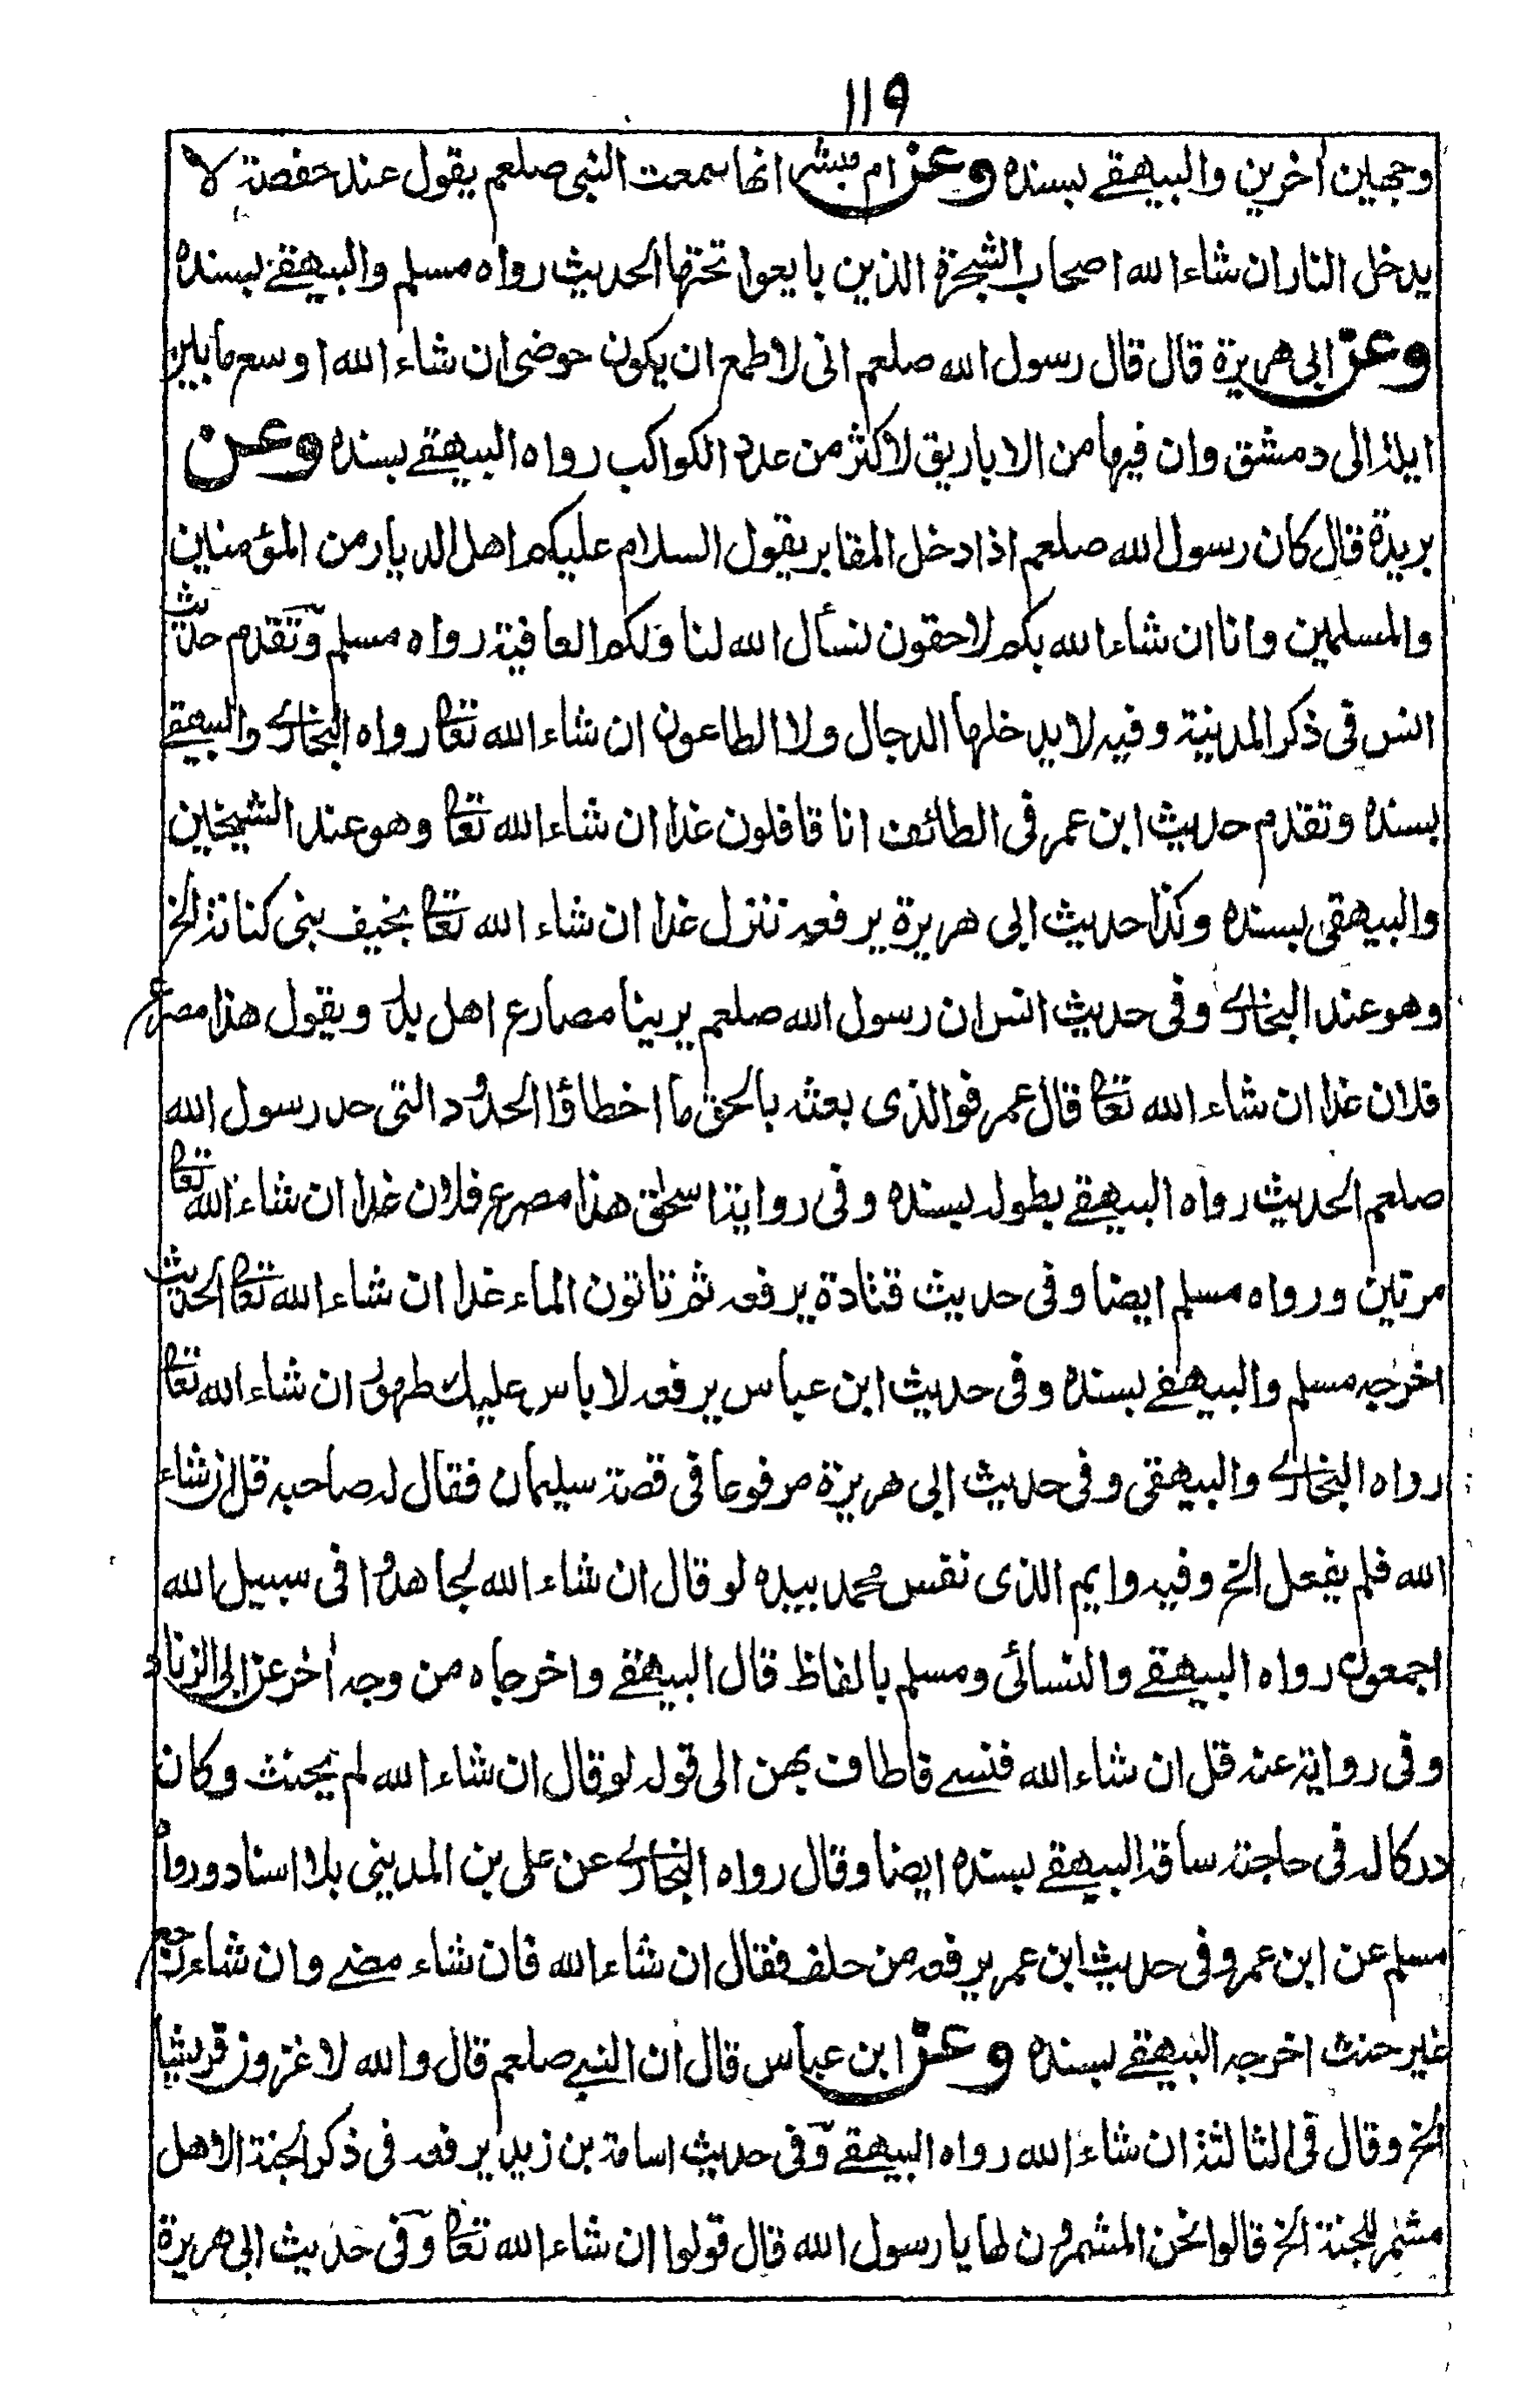 ١١٩
وجهين اخرين والبيهقے بسنده وعن ام مبشر انها سمعت النبی صلعم يقول عند حفصة لا
يدخل النار ان شاء الله اصحاب الشجرة الذين بايعوا تحتها الحديث رواه مسلم والبيهقے بسنده
وعن ابی هريرة قال قال رسول الله صلعم انی لاطمع ان يكون حوضی ان شاء الله اوسع ما بين
ايلة الی دمشق وان فيها من الاباريق لاكثر من عدد الكواكب رواه البيهقے بسنده وعن
بريدة قال كان رسول الله صلعم اذا دخل المقابر يقول السلام عليكم اهل الديار من المؤمنين
والمسلمين وانا ان شاء الله بكم لاحقون نسأل الله لنا ولكم العافية رواه مسلم وتقدم حديث
انس فی ذكر المدينة وفيه لا يدخلها الدجال ولا الطاعون ان شاء الله تعا رواه البخاری والبيهقے
بسنده وتقدم حديث ابن عمر فی الطائف انا قافلون غدا ان شاء الله تعا وهو عند الشيخين
والبيهقی بسنده وكذا حديث ابی هريرة يرفعه ننزل غدا ان شاء الله تعا بخيف بنی كنانة الخ
وهو عند البخاری وفی حديث انس ان رسول الله صلعم يرينا مصارع اهل بدر ويقول هذا مصرع
فلان غدا ان شاء الله تعا قال عمر فوالذی بعثه بالحق ما اخطاؤا الحدود التی حد رسول الله
صلعم الحديث رواه البيهقے بطوله بسنده وفی رواية اسحق هذا مصرع فلان غدا ان شاء الله تعا
مرتين ورواه مسلم ايضا وفی حديث قتادة يرفعه ثم تاتون الماء غدا ان شاء الله تعا الحديث
اخرجه مسلم والبيهقے بسنده وفی حديث ابن عباس يرفعه لا باس عليك طهور ان شاء الله تعا
رواه البخاری والبيهقی وفی حديث ابی هريرة مرفوعا فی قصة سليمان فقال له صاحبه قل ان شاء
الله فلم يفعل الخ وفيه وايم الذی نفس محمد بيده لو قال ان شاء الله لجاهدوا فی سبيل الله
اجمعون رواه البيهقے والنسائی ومسلم بالفاظ قال البيهقے واخرجاه من وجه اخر عن ابی الزناد
وفی رواية عنه قل ان شاء الله فنسے فاطاف بهن الی قوله لو قال ان شاء الله لم يحنث وكان
دركا له فی حاجته ساقه البيهقے بسنده ايضا وقال رواه البخاری عن علی بن المدينی بلا اسناد ورواه
مسلم عن ابن عمر وفی حديث ابن عمر يرفعه من حلف فقال ان شاء الله فان شاء مضے وان شاء رجع
غير حنث اخرجه البيهقے بسنده وعن ابن عباس قال ان النبے صلعم قال والله لاغزون قريشا
الخ وقال فی الثالثة ان شاء الله رواه البيهقے وفی حديث اسامة بن زيد يرفعه فی ذكر الجنة الا هل
مشمر للجنة الخ قالوا نحن المشمرون لها يا رسول الله قال قولوا ان شاء الله تعا وفی حديث ابی هريرة